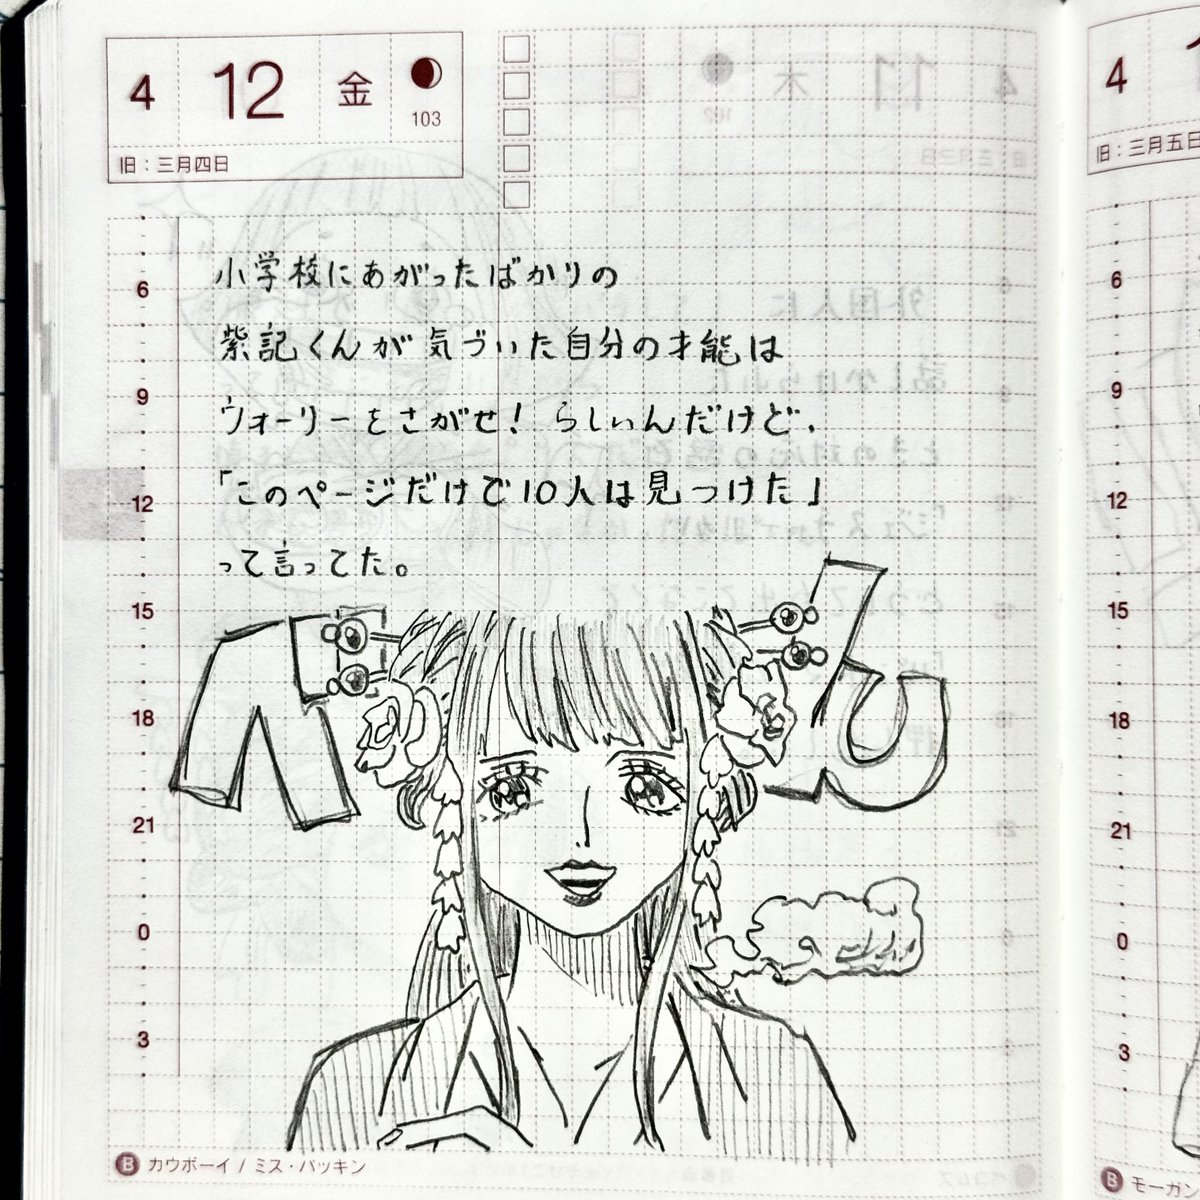 4 12 金
103
旧：三月四日
小学校にあがったばかりの
紫記くんが気づいた自分の才能は
ウォーリーをさがせ！らしいんだけど、
「このページだけで10人は見つけた」
って言ってた。
6
9
12
15
18
21
0
3
B カウボーイ / ミス・バッキン
4
旧：三月五日
6
9
12
15
18
21
0
3
B モーガン